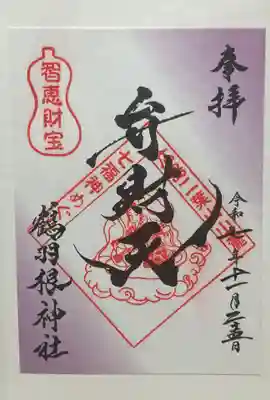 奉拝
令和七年十一月二五日
弁財天
七福神めぐ
智恵財宝
鶴羽根神社